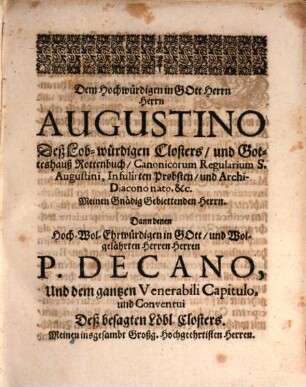 Dem Hochwürdigen in GOtt Herrn
Herrn
AUGUSTINO
Deß Lob-würdigen Closters/ und Got-
teshauß Rottenbuch/ Canonicorum Regularium S.
Augustini, Infulirten Probsten/ und Archi-
Diacono nato. &c.
Meinen Gnädig Gebiettenden Herrn.
Dann denen
Hoch-Wol-Ehrwürdigen in GOtt/ und Wol-
gelährten Herren Herren
P. DECANO,
Und dem gantzen Venerabili Capitulo,
und Conventui
Deß besagten Löbl. Closters.
Meinen insgesambt Großg. Hochgeehrtisten Herren.